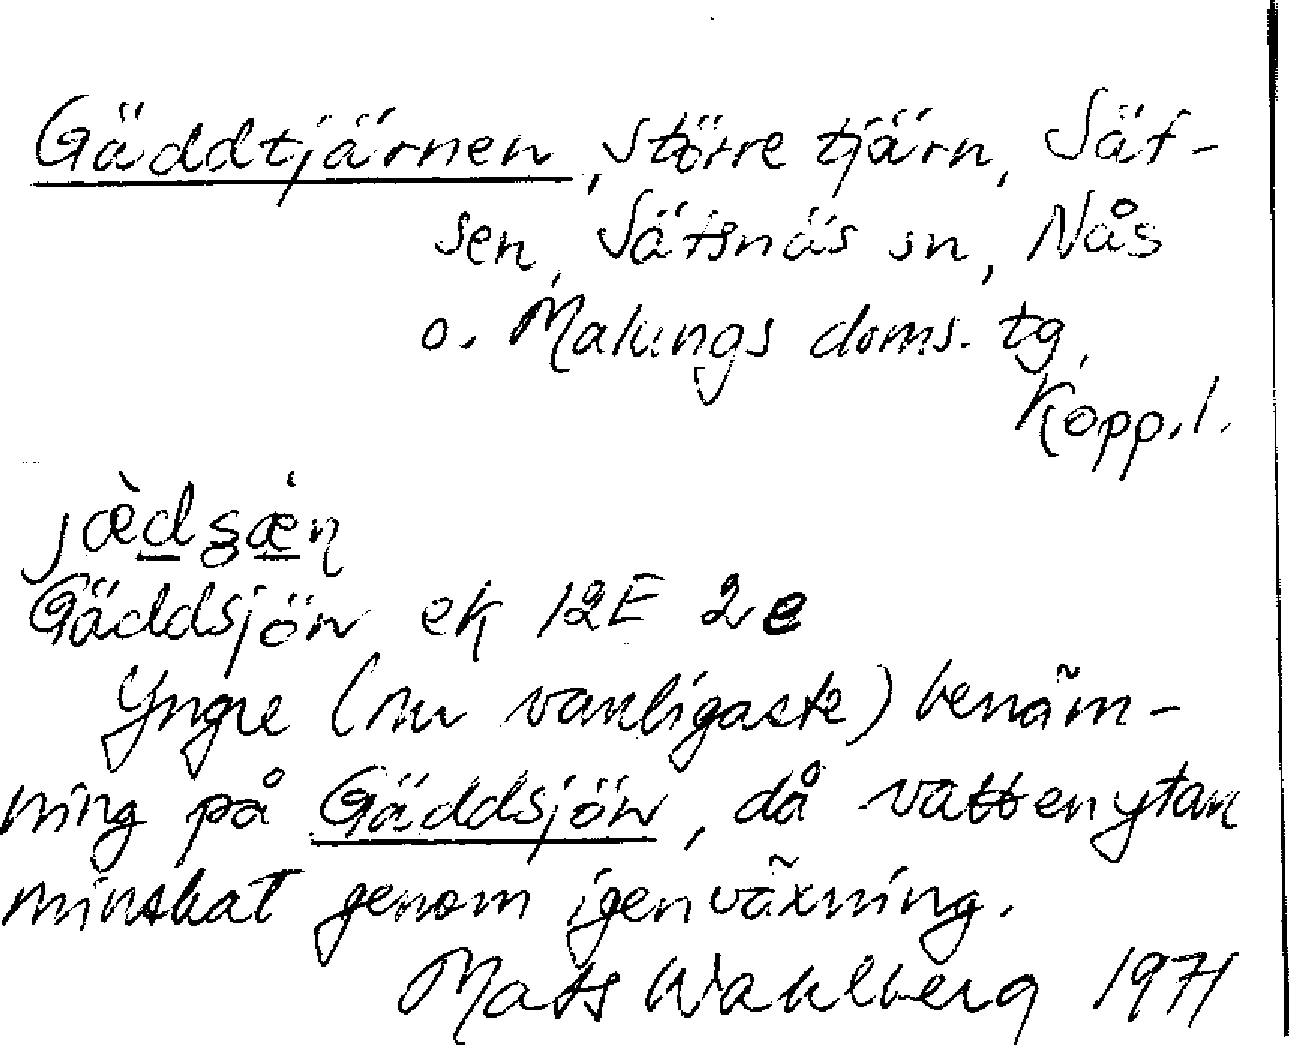 Gäddtjärnen, större tjärn, Sät-
sen, Sätsnäs sn, Nås
o. Malungs doms. tg,
Kopp. l.
Gäddsjön ek 12E 2e
Yngre (nu vanligaste) benäm-
ning på Gäddsjön, då vattenytan
minskat genom igenväxning.
Mats Wahlberg 1971